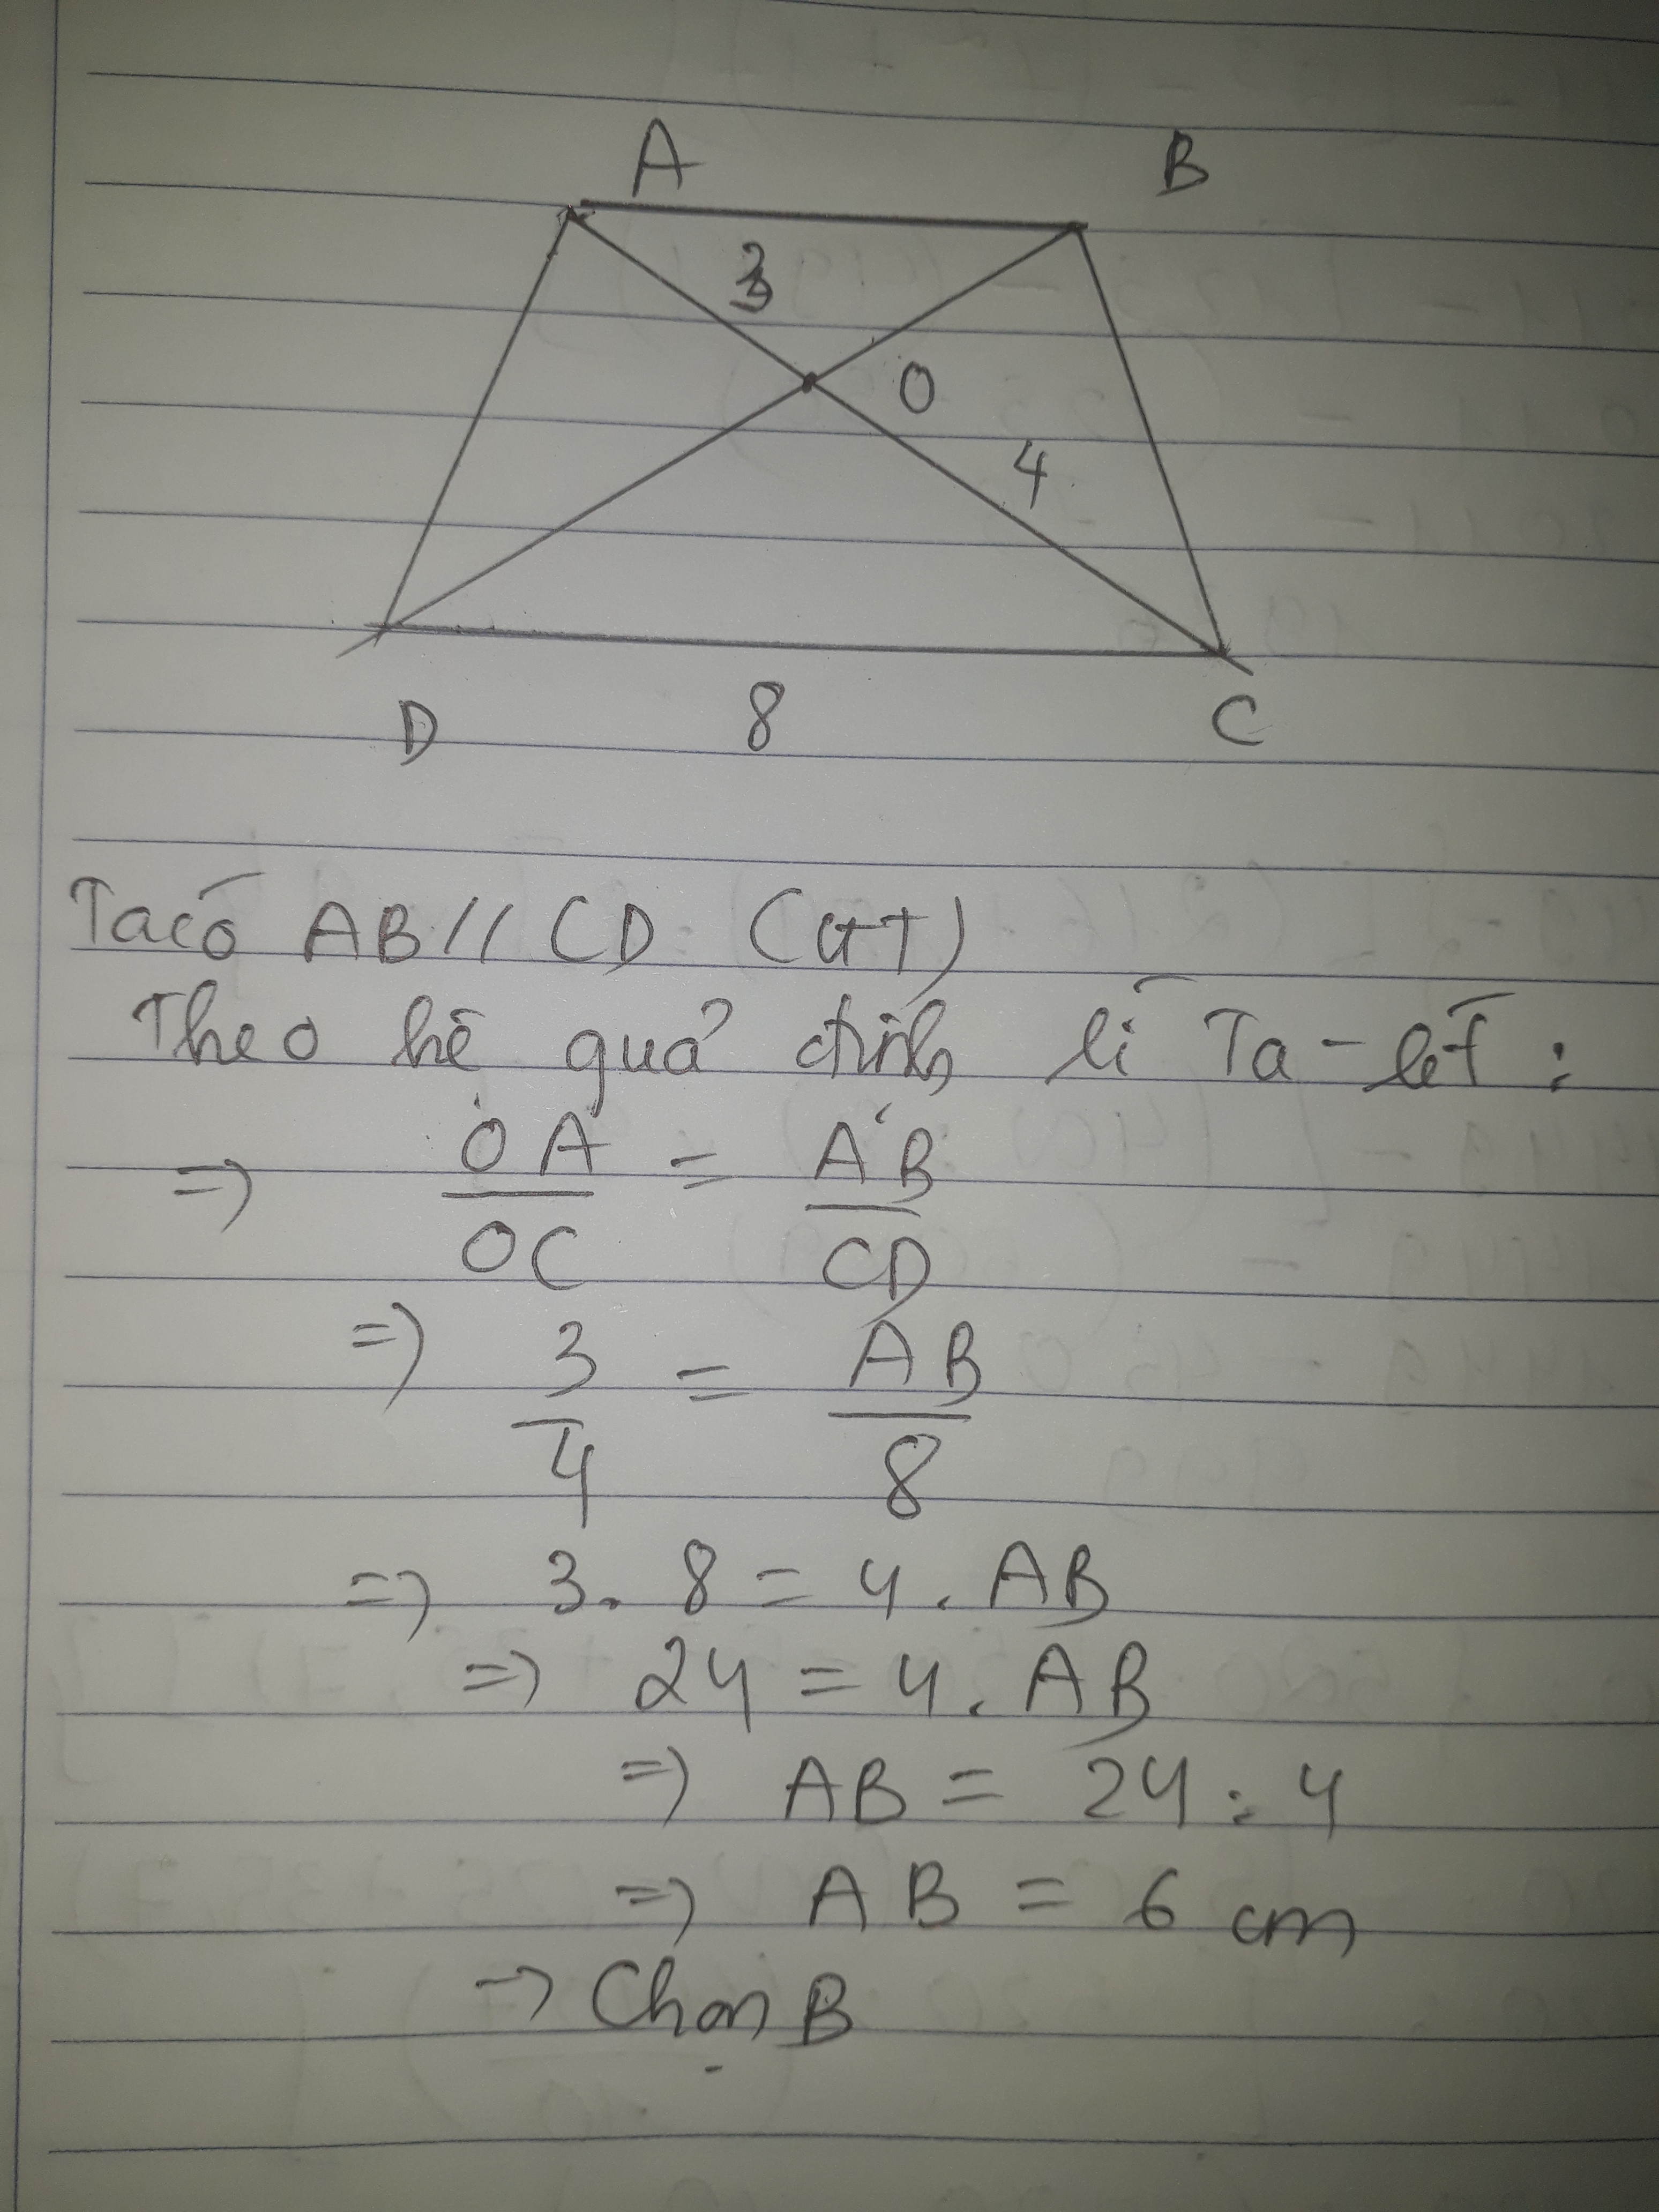 A B
3
O
4
D 8 C
Ta có AB // CD (GT)
Theo hệ quả định lí Ta-lét :
=> OA/OC = AB/CD
=> 3/4 = AB/8
=> 3. 8 = 4. AB
=> 24 = 4. AB
=> AB = 24 : 4
=> AB = 6 cm
-> Chọn B